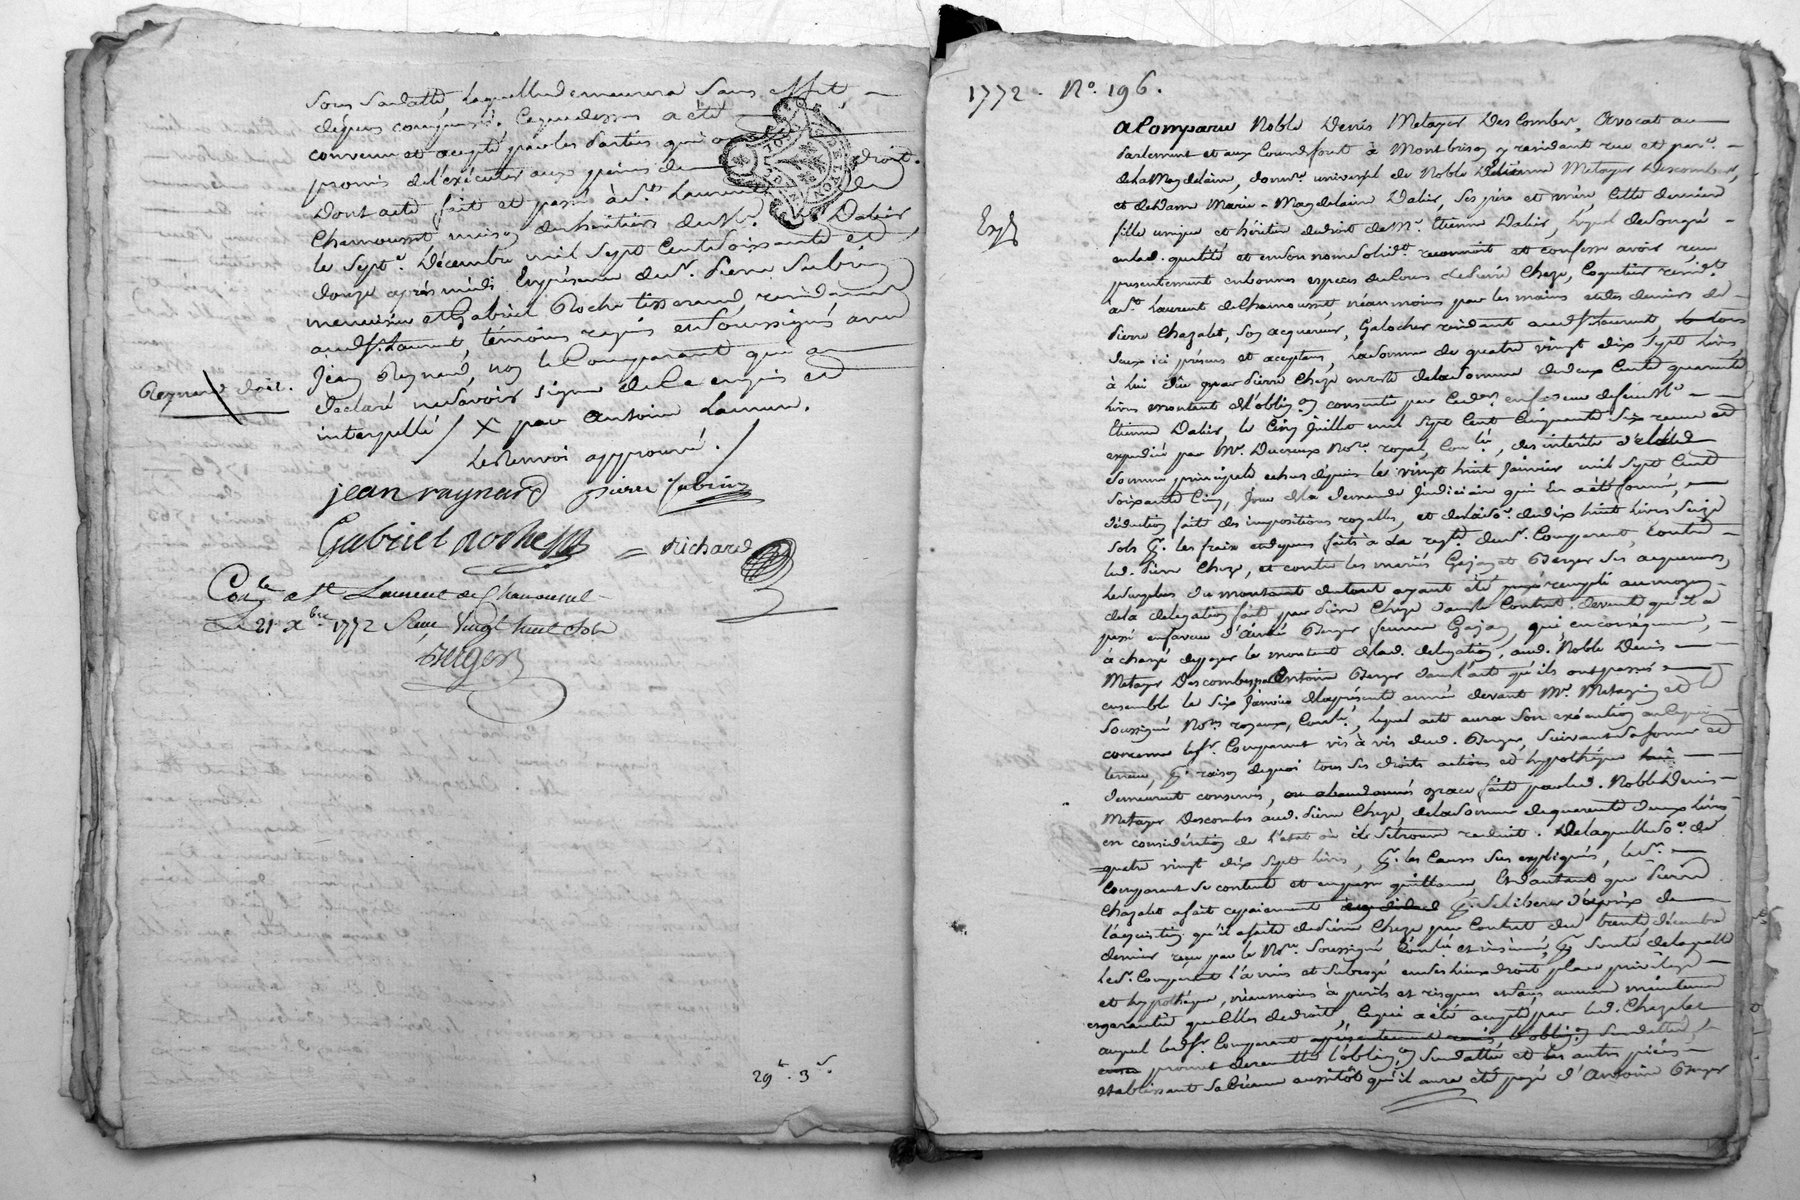 sous sa datte, laquelle demeurera sans effet,
depuis
convenu et accepté par les parties qui o
promis de l'exécuter aux peines de droit.
Dont acte fait et passé à St. Laurent de
Chamousset maison des héritiers du Sr. Dalier
le sept. Décembre mil sept cent soixante et
douze après midi En présence de Sr. Pierre Subrin
menuisier et Gabriel Roche tisserand, résidants
aud. St. Laurent, témoins requis et soussignés avec
Jean Reynard, non le Comparant qui a
déclaré ne savoir signer de ce enquis et
interpellé / X par Antoine
Le Renvoi approuvé. /
Reynard doit.
jean raynard pierre subrin
Gabriel roche = Richard
Con.le a St Laurent de Chamousset
Ce 21 Xbre 1772 Reçu vingt huit sols
29 3
1772. No. 196.
Exp.
A Comparu Noble Denis Metayer Descombes, Avocat au
Parlement et aux Cours de forest à Montbrison y residant rue et par.
de la Magdelaine, donre. universel de Noble Etienne Metayer Descombes,
et de Dame Marie-Magdelaine Dalier, ses père et mère Cette dernière
fille unique et héritière de droit de Mr. Etienne Dalier, lequel de son gré
en lad. qualité et en son nom solidt. reconnoit et confesse avoir reçu
presentement en bonnes especes du cours de Pierre Cheze, Coquetier resid.t
à St. Laurent de Chamousset, néanmoins par les mains et des deniers de
Pierre Chazalet, son acquereur, Galocher résidant aud. St. Laurent,
deux ici présens et acceptans, la somme de quatre vingt dix sept livres,
à lui due par Pierre Cheze en reste de la somme de deux cent quarante
livres montant de l'oblig.on consentie par en faveur de feu Mr.
Etienne Dalier, le Cinq Juillet mil sept cent cinquante six reçue et
expédiée par Mr. Ducreux No.re royal, Con.lé, des interets de lad.
somme principale echus depuis le vingt huit Janvier mil sept Cent
soixante cinq, jour de la demande Judiciaire qui en a été formée,
déduction faite des impositions royales, et de la so. de dix huit livres seize
sols pr. les fraix et depens faits à la reqte. du Sr. Comparant, contre
led. Pierre Cheze, et contre les mariés Gojon et Berger ses acquereurs,
le surplus du montant du tout ayant été rempli au moyen
de la delegation faite par Pierre Cheze dans le Contrat de vente qu'il a
passé en faveur d'Aimée Berger femme Gojon, qui en conséquence,
à chargé de payer le montant de lad. delegation, aud. Noble Denis
Metayer Descombes par Antoine Berger dans l'acte qu'ils ont passé
ensemble le six Janvier de la présente année devant Mr. Metayer et le
soussigné No.res royaux, Con.lé, lequel acte aura son exécution en ce qui
concerne led. Sr. Comparant vis à vis dud. Berger, suivant sa forme et
teneur, pr. raison de quoi tous ses droits actions et hypothéque lui
demeurent conservés, ou abandonnés grace faite par led. Noble Denis
Metayer Descombes aud. Pierre Cheze, de la somme de quarente deux livres
en considération de l'état où il se trouve reduit. De laquelle so.e de
quatre vingt dix sept livres, pr. les causes sus expliquées, led. Sr.
Comparant se contente et en passe quittance, Et d'autant que Pierre
Chazalet a fait ce paiement pr. se liberer du prix de
l'acquisition qu'il a faite de Pierre Cheze par Contrat du trente décembre
dernier reçu par le No.re soussigné Con.lé et insinué, pr. sureté de laquelle
led. Sr. Comparant l'a mis et subrogé en ses lieux droit place privilége
et hypothéque, néanmoins à perils et risques et sans aucune maintenue
et garantie que celles de droit, ce qui a été accepté par led. Chazalet
auquel led. Sr. Comparant
promet de remettre l'oblig.on susdattée et les autres pièces
etablissant sa créance aussitôt qu'il aura été payé d'Antoine Berger